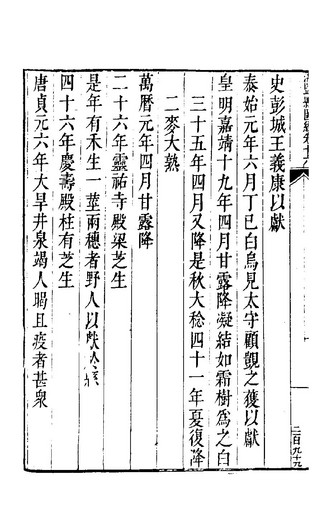 史彭城王義康以獻
泰始元年六月丁巳白烏見太守顧覬之獲以獻
皇明嘉靖十九年四月甘露降凝結如霜樹為之白
三十五年四月又降是秋大稔四十一年夏復降
二麥大熟
萬曆元年四月甘露降
二十六年靈祐寺殿梁芝生
是年有禾生一莖兩穗者野人以獻於縣
四十六年慶壽殿柱有芝生
唐貞元六年大旱井泉竭人暍且疫者甚衆
二百九十九